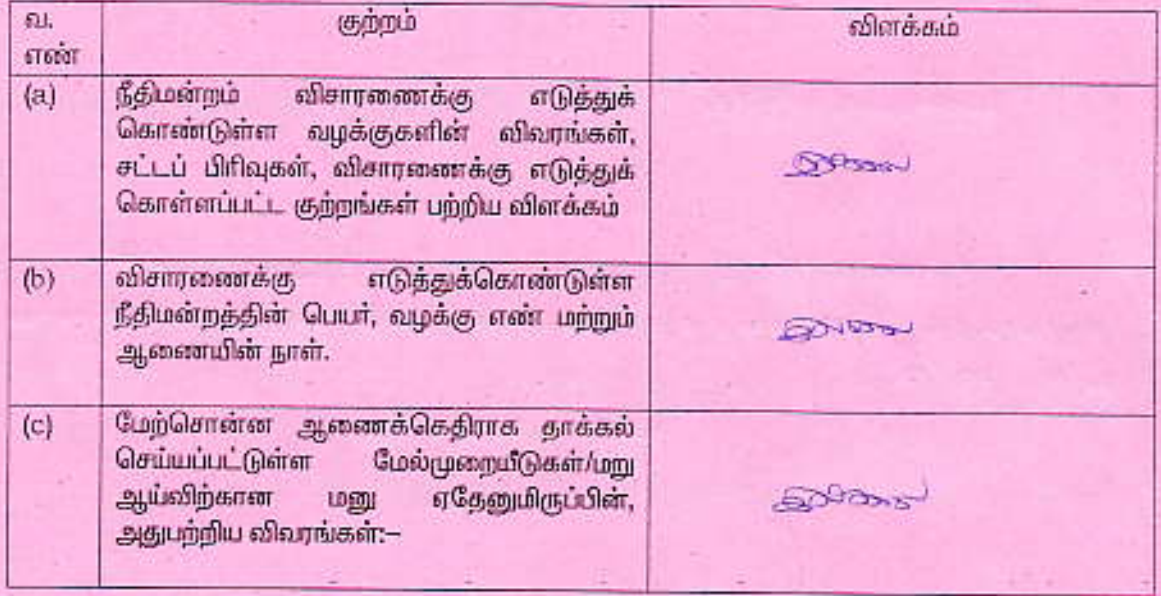 வ.
எண்
குற்றம்
விளக்கம்
(a)
நீதிமன்றம் விசாரணைக்கு எடுத்துக்
கொண்டுள்ள வழக்குகளின் விவரங்கள்,
சட்டப் பிரிவுகள், விசாரணைக்கு எடுத்துக்
கொள்ளப்பட்ட குற்றங்கள் பற்றிய விளக்கம்
இல்லை
(b)
விசாரணைக்கு எடுத்துக்கொண்டுள்ள
நீதிமன்றத்தின் பெயர், வழக்கு எண் மற்றும்
ஆணையின் நாள்.
இல்லை
(c)
மேற்சொன்ன ஆணைக்கெதிராக தாக்கல்
செய்யப்பட்டுள்ள மேல்முறையீடுகள்/மறு
ஆய்விற்கான மனு ஏதேனுமிருப்பின்,
அதுபற்றிய விவரங்கள்:–
இல்லை